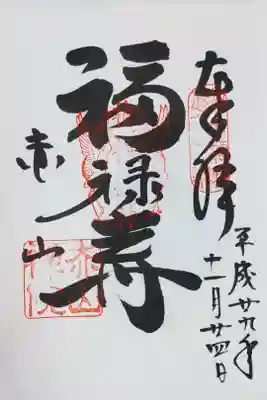 奉拝
平成廿九年
十一月廿四日
福禄寿
赤山